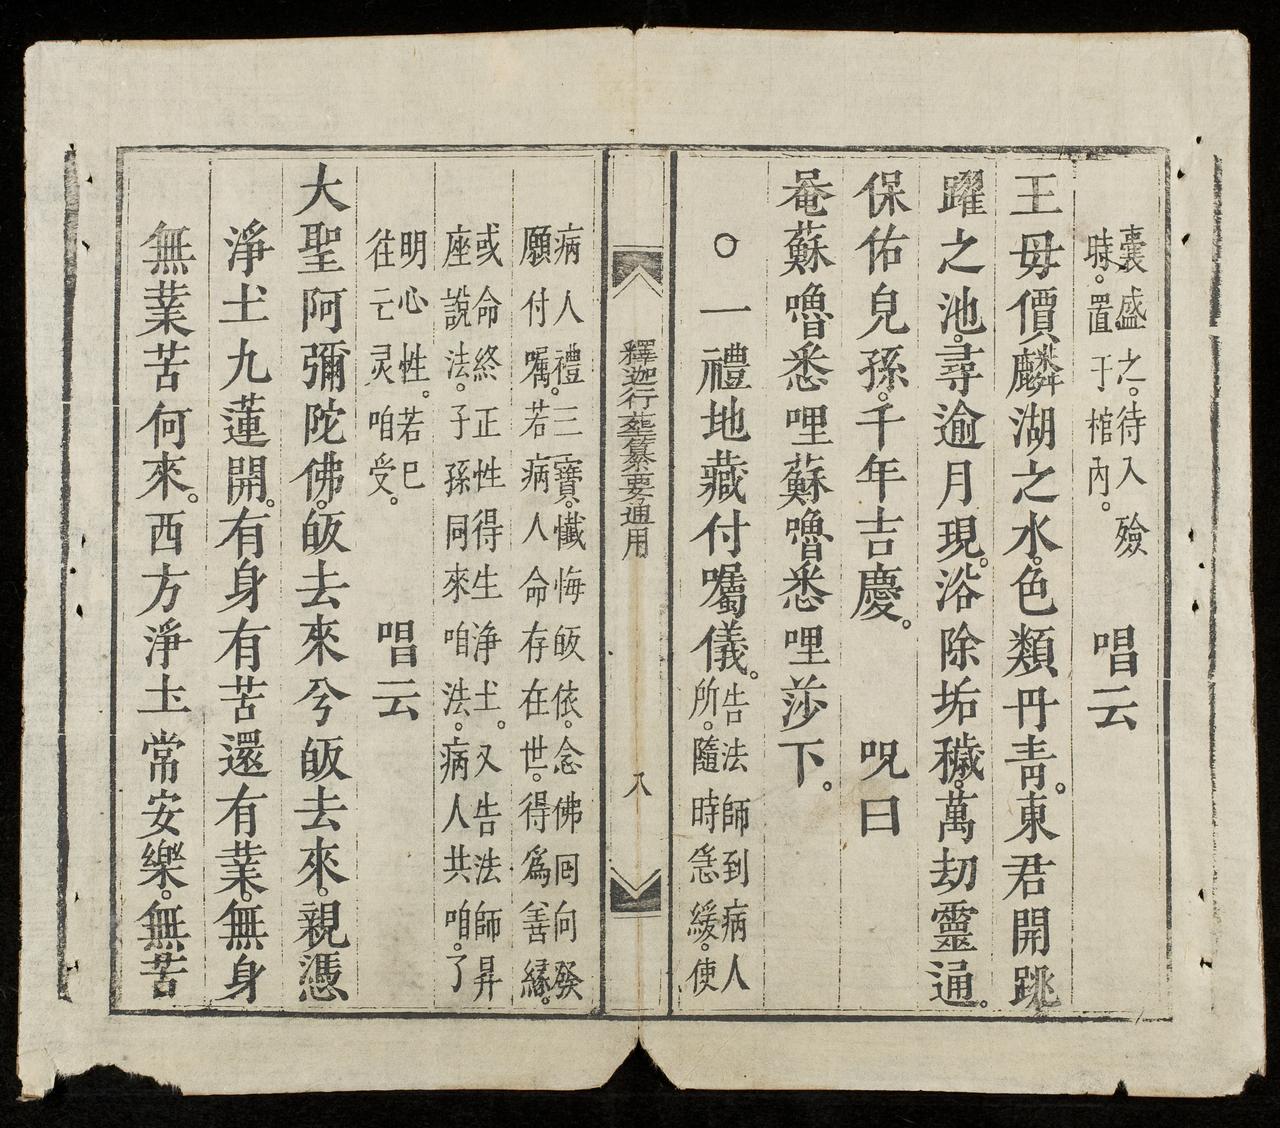 囊盛之。待入殮
時。置于棺內。　唱云
王母價麟湖之水。色類丹青。東君開跳
躍之池。尋逾月現。浴除垢穢。萬刼靈通。
保佑兒孫。千年吉慶。　呪曰
唵蘇嚕悉哩蘇嚕悉哩莎下。
○一禮地藏付囑儀。告法師到病人
所。隨時急緩。使
釋迦行塟纂要通用　八
病人禮三寶。懺悔皈依。念佛囘向發
願付囑。若病人命存在世。得爲善縁。
或命終正性得生净土。又告法師昇
座說法。子孫同來咱法。病人共咱。了
明心性。若已
往亡灵咱受。　唱云
大聖阿彌陀佛。皈去來兮皈去來。親憑
淨土九蓮開。有身有苦還有業。無身
無業苦何來。西方淨土常安樂。無苦